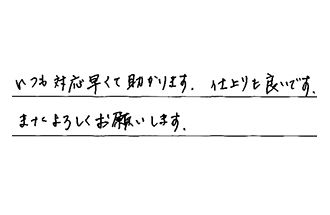 いつも対応早くて助かります. 仕上りも良いです.
またよろしくお願いします.